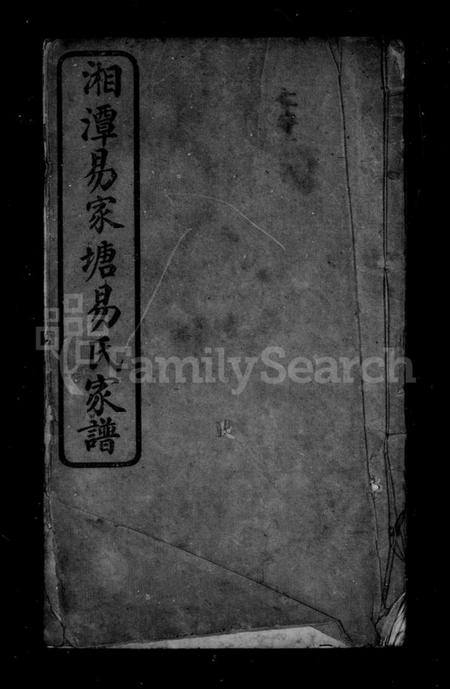 湘潭易家塘易氏家譜
FamilySearch